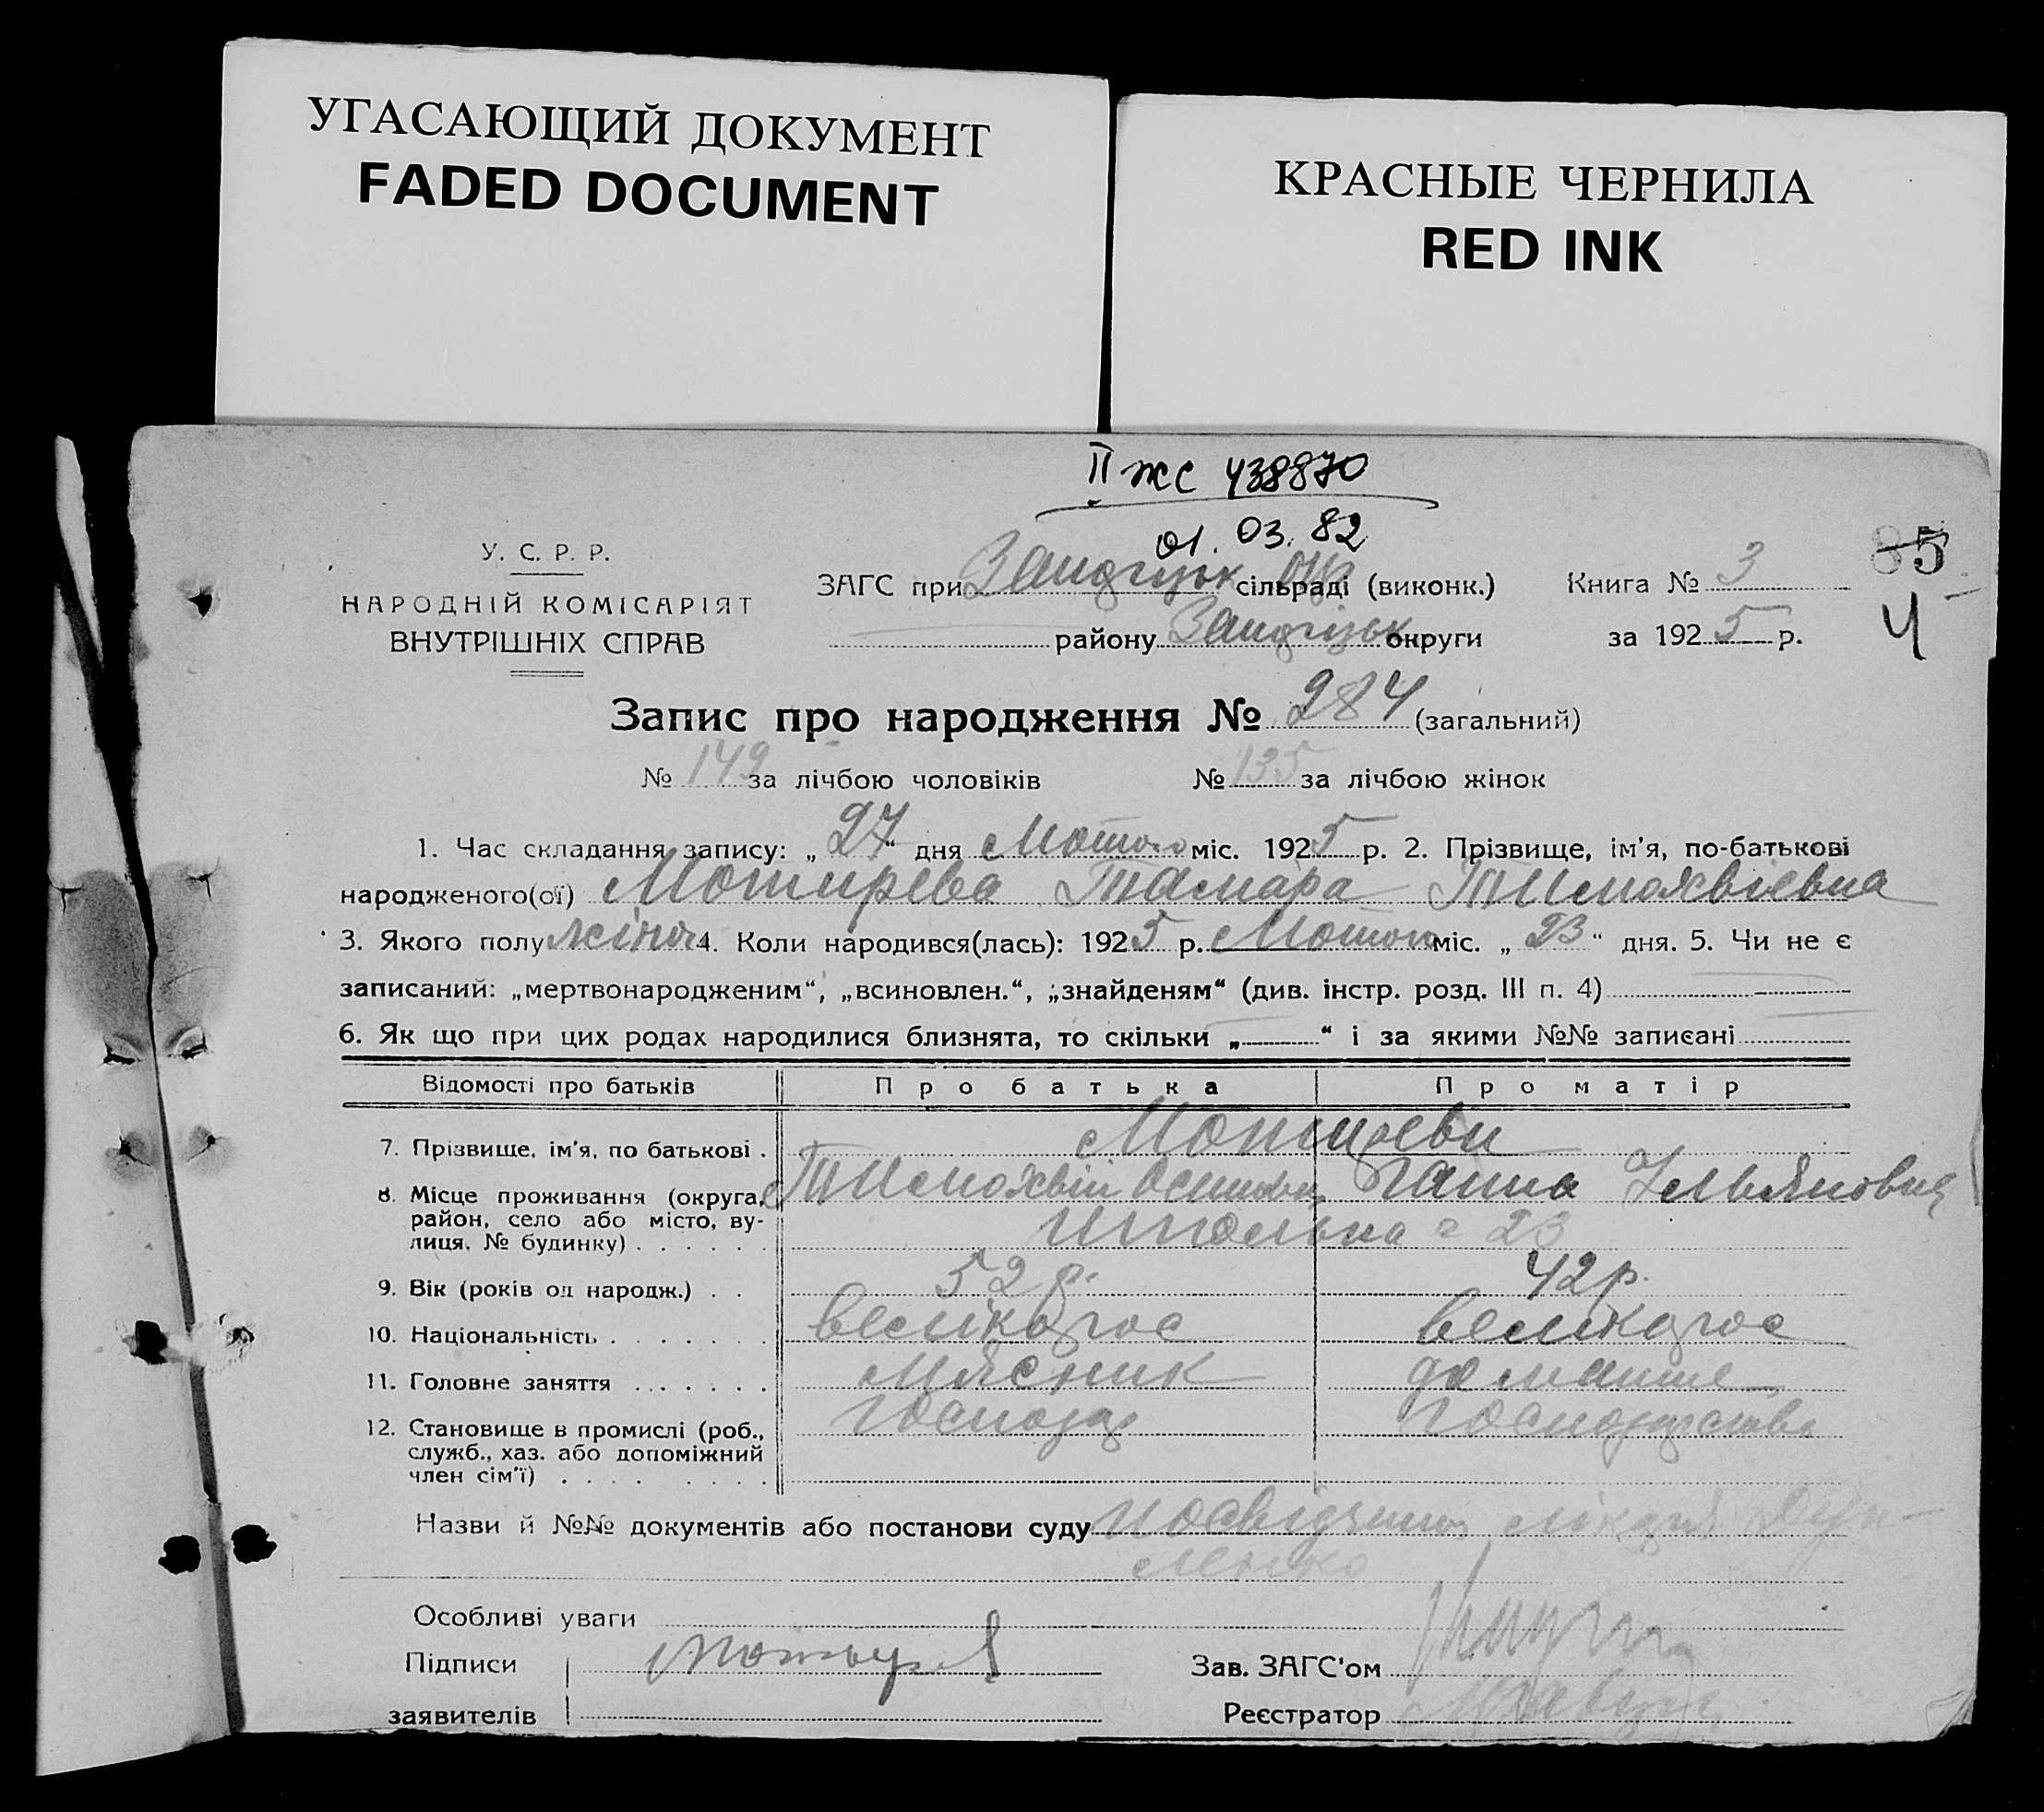 УГАСАЮЩИЙ ДОКУМЕНТ
FADED DOCUMENT
КРАСНЫЕ ЧЕРНИЛА
RED INK
II ЖС 438870
01.03.82
85
4
У. С. Р. Р.
НАРОДНІЙ КОМІСАРІЯТ
ВНУТРІШНІХ СПРАВ
ЗАГС при сільраді (виконк.) Книга № 3
району округи за 1925 р.
Запис про народження № 284 (загальний)
№ 149 за лічбою чоловіків № 135 за лічбою жінок
1. Час складання запису: „27“ дня Лютого міс. 1925 р. 2. Прізвище, ім'я, по-батькові
народженого(ої) Мотирева Тамара Тимохвіевна
3. Якого полу жіноч 4. Коли народився(лась): 1925 р. Лютого міс. „23“ дня. 5. Чи не є
записаний: „мертвонародженим“, „всиновлен.“, „знайденям“ (див. інстр. розд. III п. 4)
6. Як що при цих родах народилися близнята, то скільки „ “ і за якими №№ записані
Відомості про батьків Про батька Про матір
7. Прізвище, ім'я, по батькові . Мотиреви
8. Місце проживання (округа, Тимохвій Осипов Ганна Ульяновна
район, село або місто, ву-
лиця, № будинку) . . . . . . Школьна 23
9. Вік (років од народж.) . . 52 р. 42 р.
10. Національність . . . . . . . великорос великорос
11. Головне заняття . . . . . . . мясник домашне
12. Становище в промислі (роб., господар господарство
служб., хаз. або допоміжний
член сім'ї) . . . . . . . . .
Назви й №№ документів або постанови суду посвідчення лікаря
Особливі уваги
Підписи Мотырев Зав. ЗАГС'ом
заявителів Реєстратор